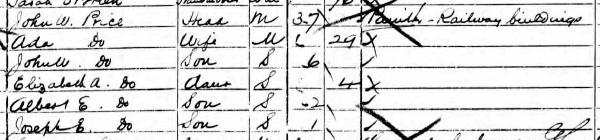 John W. Price Head M 37 Smith - Railway buildings
Ada Do Wife M 29 X
John W. Do Son S 6
Elizabeth A. Do Daur S 4 X
Albert E. Do Son S 2
Joseph E. Do Son S 1